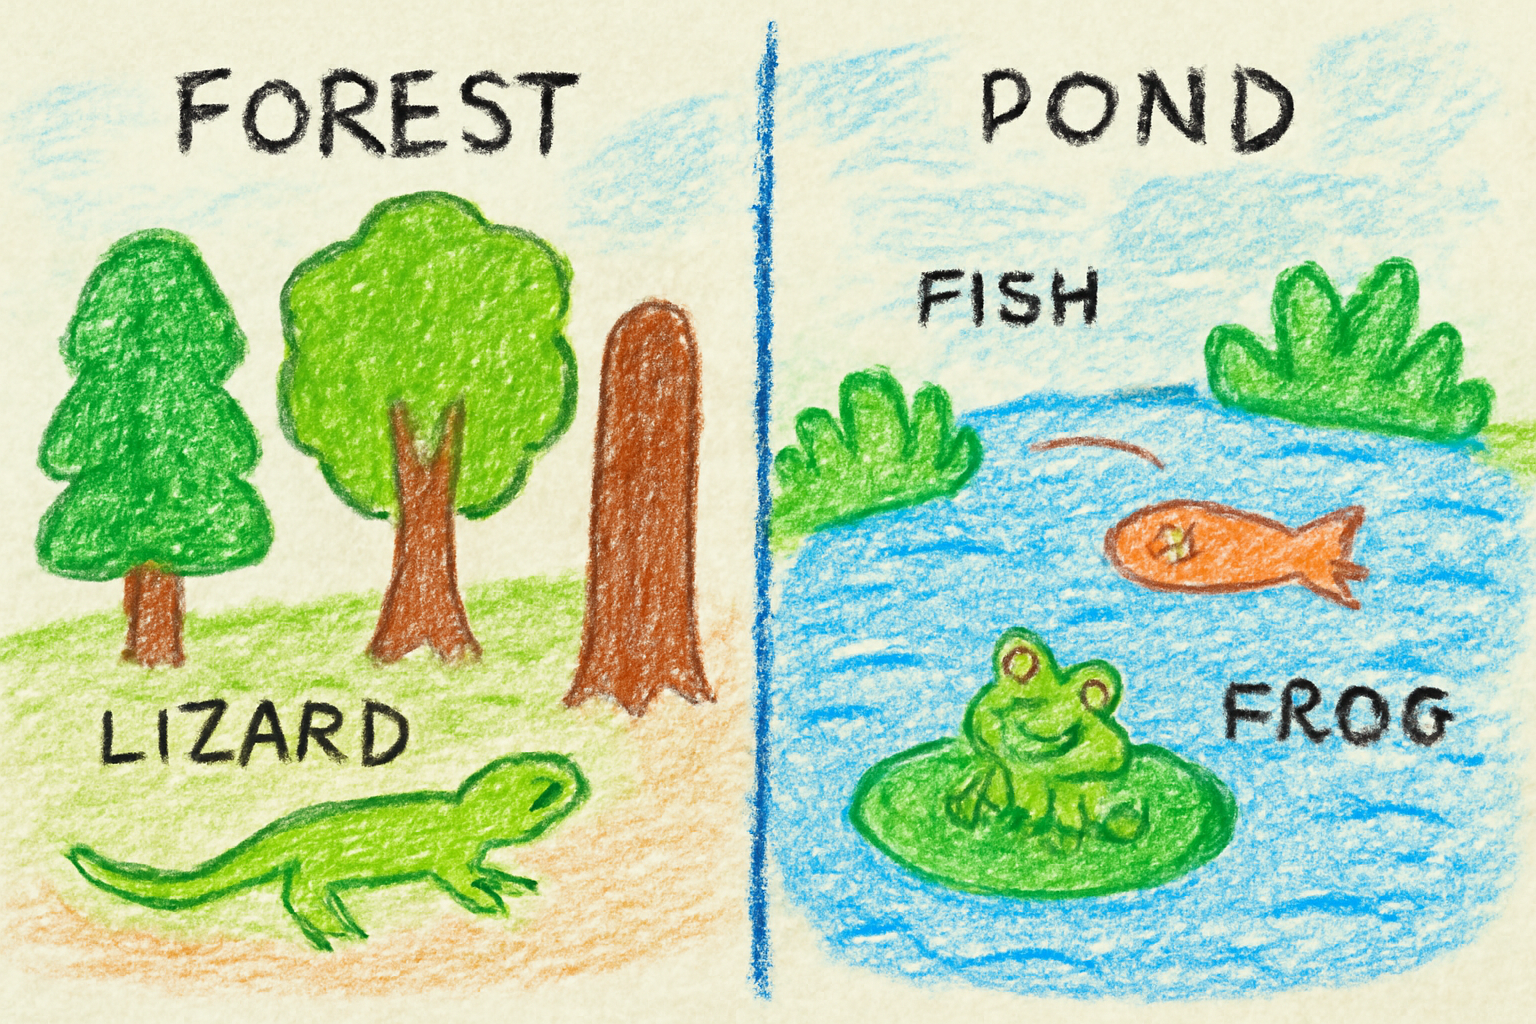 FOREST
LIZARD
POND
FISH
FROG